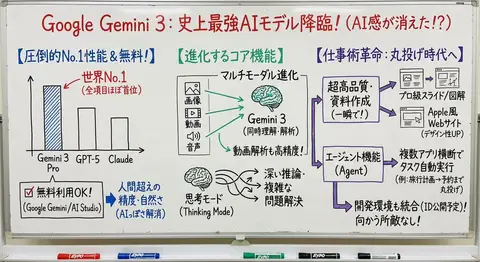 Google Gemini 3：史上最強AIモデル降臨！(AI感が消えた!?)
【圧倒的No.1性能＆無料！】
世界No.1
(全項目ほぼ首位)
Gemini 3
Pro
GPT-5
Claude
無料利用OK！
(Google Gemini/AI Studio)
人間超えの
精度・自然さ
(AIっぽさ解消)
【進化するコア機能】
マルチモーダル進化
画像
動画
音声
Gemini 3
(同時理解・解析)
動画解析も高精度！
思考モード
(Thinking Mode)
深い推論・
複雑な
問題解決
【仕事術革命：丸投げ時代へ】
超高品質・
資料作成
(一瞬で！)
プロ級スライド/図解
Apple風
Webサイト
(デザイン性UP)
エージェント機能
(Agent)
複数アプリ横断で
タスク自動実行
(例：旅行計画→予約まで
丸投げ)
開発環境も統合(ID公開予定)！
向かう所敵なし！
EXPO
EXPO
EXPO
EXPO